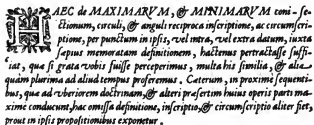 HAEC de MAXIMARVM, & MINIMARVM coni-se-
ctionum, circuli, & anguli reciproca inscriptione, ac circumscri-
ptione, per punctum in ipsis, vel intra, vel extra datum, iuxta
sæpius memoratam definitionem, hactenus pertractasse suffi-
ciat, quæ si grata vobis fuisse perceperimus, multa his similia, & alia
quàm plurima ad aliud tempus proferemus. Cæterum, in proximè sequenti-
bus, quæ ad vberiorem doctrinam, & alteri præsertim huius operis parti ma-
ximè conducunt, hac omissa definitione, inscriptio, & circumscriptio aliter fiet,
prout in ipsis propositionibus exponetur.